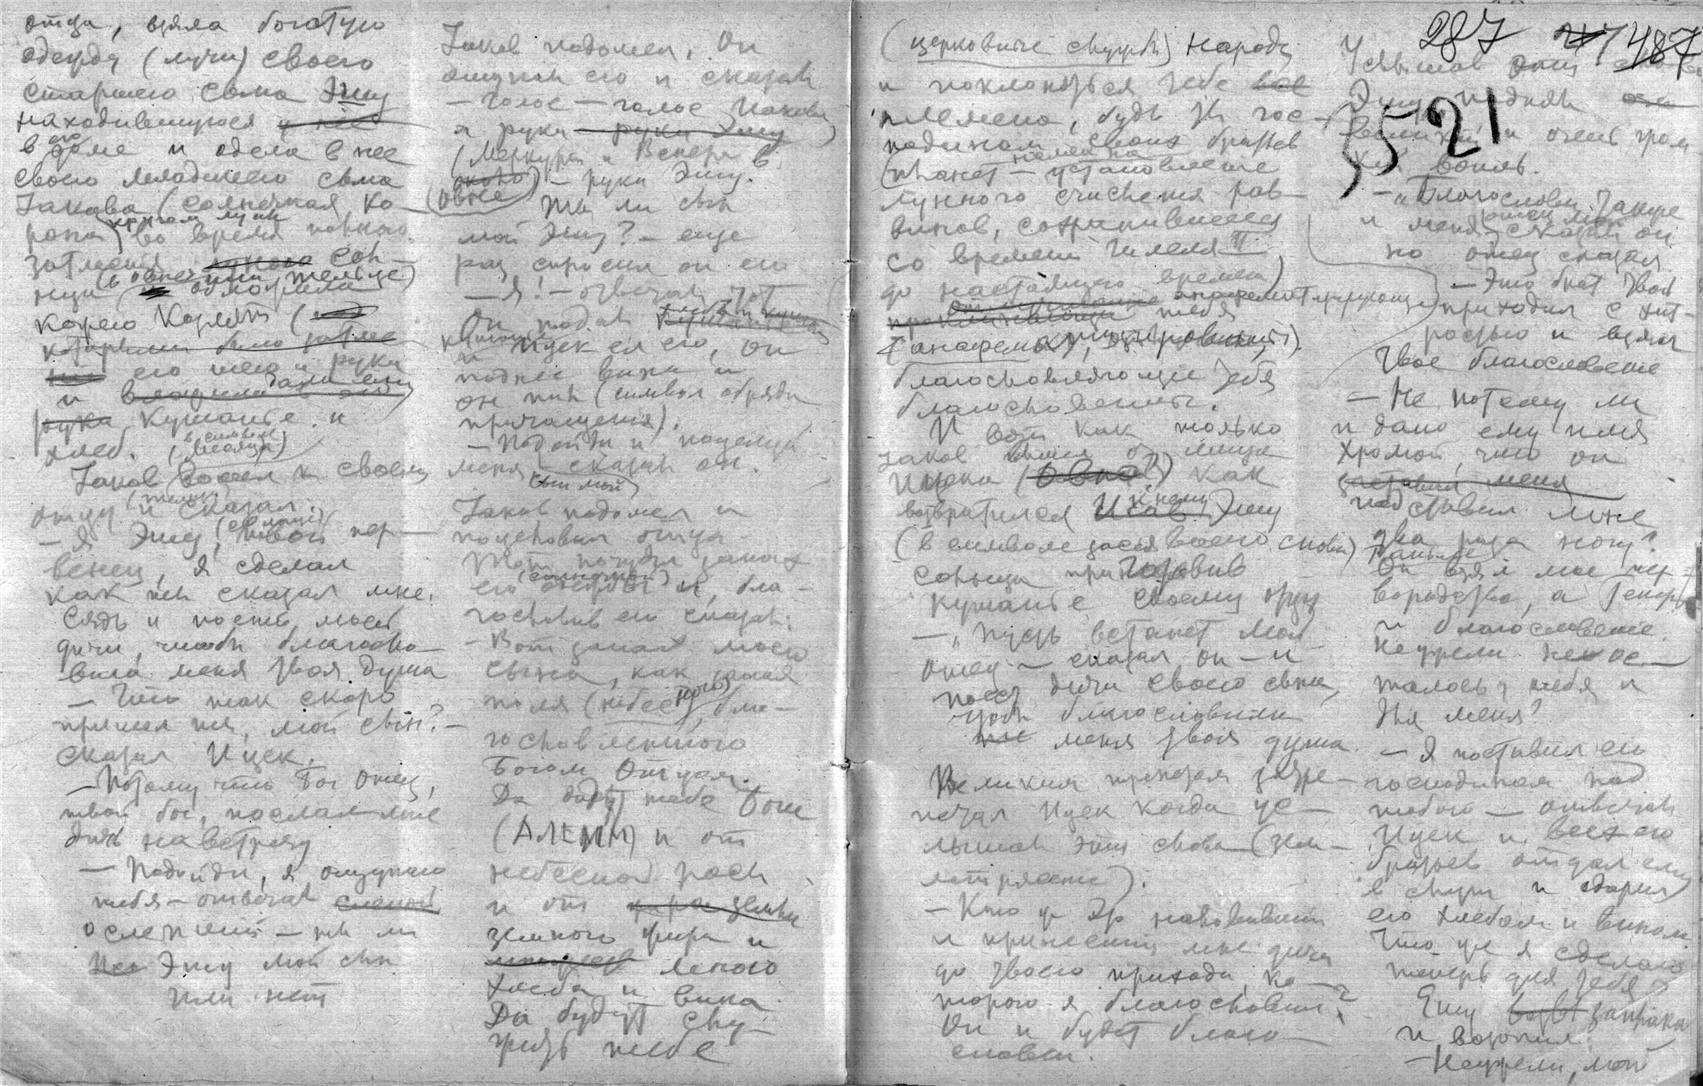 отца, взяла богатую
одежду (лучи) своего
старшего сына Эшу
находившуюся у нее
в его доме и одела в нее
своего младшего сына
Иакова (солнечная ко-
рона кругом луны) во время полного
затмения солн-
ца (в овне или тельце) обложила
кожею козлят
его шею и руки
и дала ему
кушанье и
хлеб. (в символе месяца)
Иаков вошел к своему
отцу и сказал:
— Я Эшу, твой пер-
венец, я сделал
как ты сказал мне.
Сядь и поешь моей
дичи, чтобы благосло-
вила меня твоя душа
— Что так скоро
пришел ты, мой сын? —
сказал Ицек.
— Потому что Бог Отец,
твой бог, послал мне
дичь навстречу
— Подойди, я ощупаю
тебя — отвечал слепой
ослепший — ты ли
Эшу мой сын
или нет
Иаков подошел. Он
ощупал его и сказал
— Голос — голос Иакова
а руки — руки Эшу
(Меркурий и Венера в
Овне) — руки Эшу.
Ты ли сын
мой Эшу? — еще
раз спросил он его
— Я! — отвечал тот
Он подал
кушанье и Ицек ел его, он
поднес вина и
он пил (символ обряда
причащения).
— Подойди и поцелуй
меня, сын мой, сказал он.
Иаков подошел и
поцеловал отца
Тот почуял запах
его (солнечной) одежды и, бла-
гословив его сказал:
— Вот запах моего
сына, как запах
поля (небесного), бла-
гословленного
Богом Отцом.
Да даст тебе Бог
(АЛЕИМ) и от
небесной росы
и от
земного жира и
много
хлеба и вина
Да будут слу-
жить тебе
(церковные службы) народы
и поклонятся тебе все
племена, будь же гос-
подином своих братьев
(планет — установление
лунного счисления рав-
винов, сохранившееся
со времени Гилеля II
до настоящего времени)
проклинающие тебя
благословляющие тебя
благословенны.
И вот как только
Иаков вышел от лица
Ицека (Овна) как
возвратился к нему Эшу
(в символе засиявшего снова)
солнца приготовив
кушанье своему отцу
— „Пусть встанет мой
отец — сказал он — и
поест дичи своего сына,
чтоб благословила
меня твоя душа.
Великим трепетом затре-
петал Ицек когда ус-
лышал эти слова (зем-
летрясение).
— Кто же это наловивший
и принесший мне дичи
до твоего прихода, ко-
торого я благословил?
Он и будет благо-
словен.
287 487
521
Услышав эти слова
Эшу поднял
великий и очень гром-
кий вопль.
— „Благослови также
и меня, отец мой, сказал он
но отец сказал
— Это брат твой
приходил с хит-
ростью и взял
твое благословение
— Не потому ли
и дано ему имя
хромой, что он
подставил мне
два раза ногу?
Раньше он взял мое пер-
вородство, а теперь
и благословение.
Неужели не ос-
талось у тебя и
для меня?
— Я поставил его
господином над
тобой — отвечал
Ицек и всех его
братьев отдал ему
в слуги и одарил
его хлебом и вином.
Что же я сделаю
теперь для тебя?
Эшу заплакал
и возопил:
— Неужели, мой